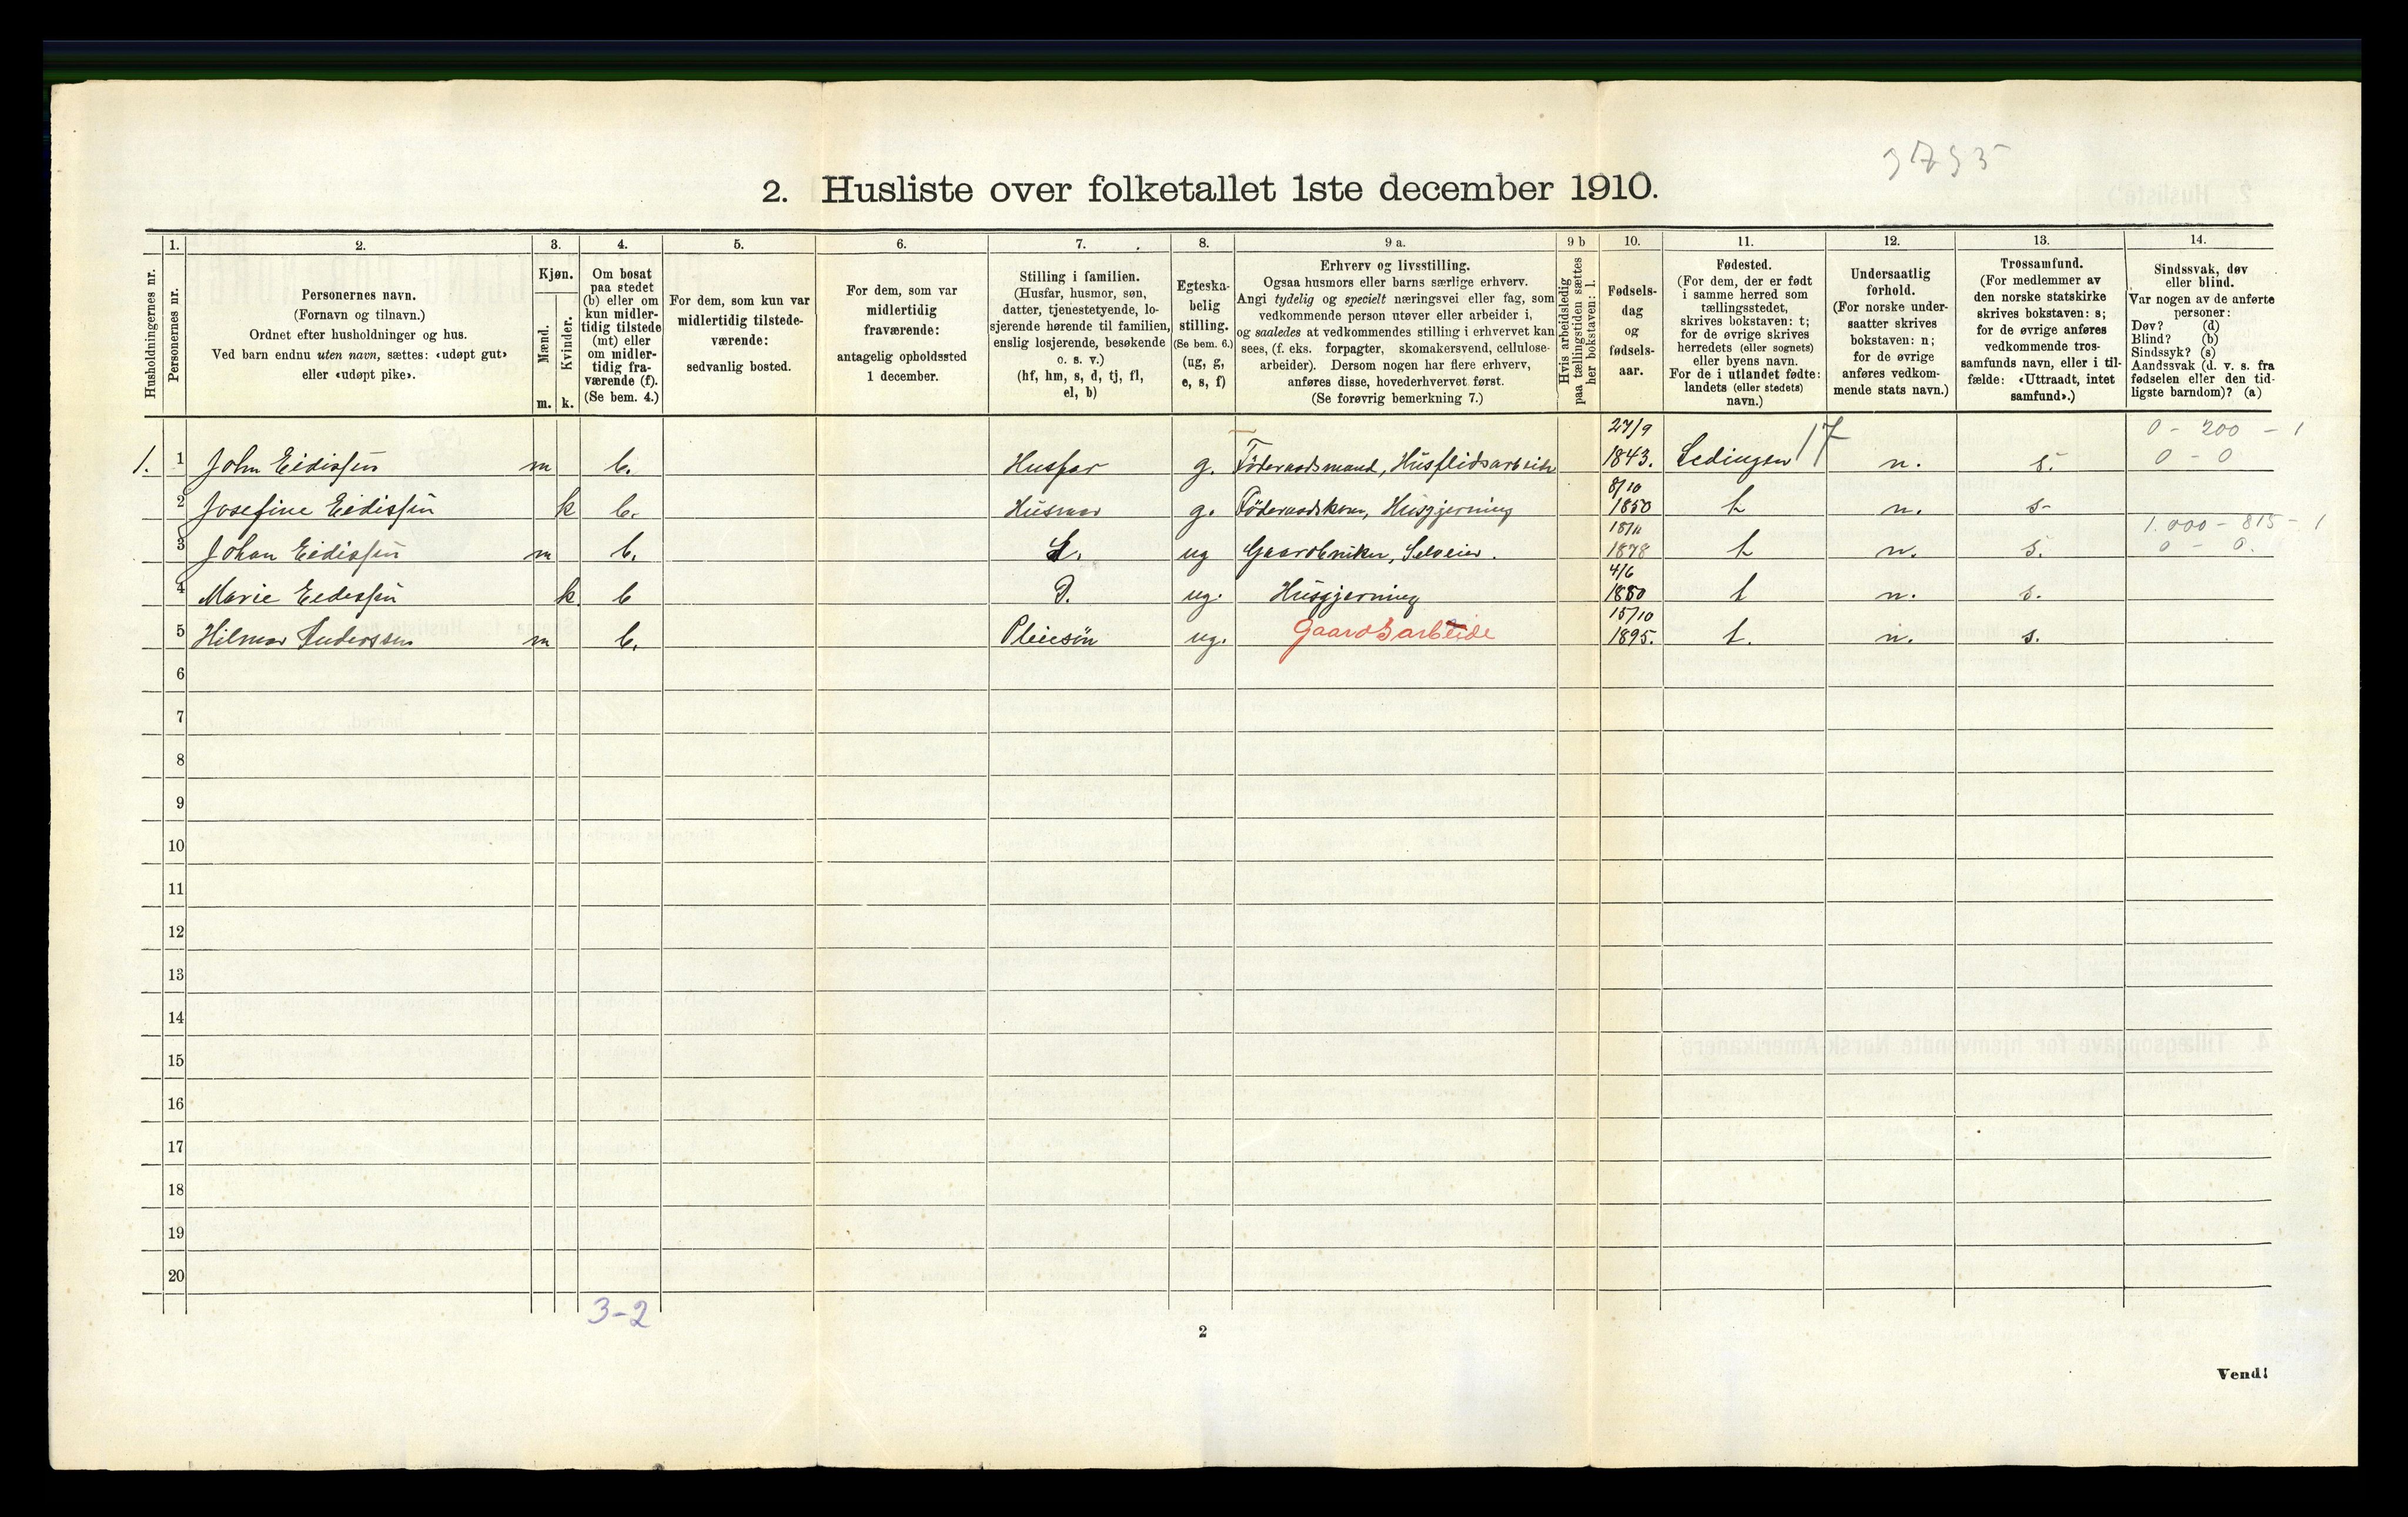 3795
2. Husliste over folketallet 1ste december 1910.
Husholdningernes nr.
1.
Personernes nr.
2.
Personernes navn.
(Fornavn og tilnavn.)
Ordnet efter husholdninger og hus.
Ved barn endnu uten navn, sættes: «udøpt gut»
eller «udøpt pike».
3.
Kjøn.
Mænd.
Kvinder.
m. k.
4.
Om bosat
paa stedet
(b) eller om
kun midler-
tidig tilstede
(mt) eller
om midler-
tidig fra-
værende (f).
(Se bem. 4.)
5.
For dem, som kun var
midlertidig tilstede-
værende:
sedvanlig bosted.
6.
For dem, som var
midlertidig
fraværende:
antagelig opholdssted
1 december.
7.
Stilling i familien.
(Husfar, husmor, søn,
datter, tjenestetyende, lo-
sjerende hørende til familien,
enslig losjerende, besøkende
o. s. v.)
(hf, hm, s, d, tj, fl,
el, b)
8.
Egteska-
belig
stilling.
(Se bem. 6.)
(ug, g,
e, s, f)
9 a.
Erhverv og livsstilling.
Ogsaa husmors eller barns særlige erhverv.
Angi tydelig og specielt næringsvei eller fag, som
vedkommende person utøver eller arbeider i,
og saaledes at vedkommendes stilling i erhvervet kan
sees, (f. eks. forpagter, skomakersvend, cellulose-
arbeider). Dersom nogen har flere erhverv,
anføres disse, hovederhvervet først.
(Se forøvrig bemerkning 7.)
9 b
Hvis arbeidsledig
paa tællingstiden sættes
her bokstaven: l.
10.
Fødsels-
dag
og
fødsels-
aar.
11.
Fødested.
(For dem, der er født
i samme herred som
tællingsstedet,
skrives bokstaven: t;
for de øvrige skrives
herredets (eller sognets)
eller byens navn.
For de i utlandet fødte:
landets (eller stedets)
navn.)
12.
Undersaatlig
forhold.
(For norske under-
saatter skrives
bokstaven: n;
for de øvrige
anføres vedkom-
mende stats navn.)
13.
Trossamfund.
(For medlemmer av
den norske statskirke
skrives bokstaven: s;
for de øvrige anføres
vedkommende tros-
samfunds navn, eller i til-
fælde: «Uttraadt, intet
samfund».)
14.
Sindssvak, døv
eller blind.
Var nogen av de anførte
personer:
Døv? (d)
Blind? (b)
Sindssyk? (s)
Aandssvak (d. v. s. fra
fødselen eller den tid-
ligste barndom)? (a)
27/9 0 - 200 - 1
1. 1 John Eidissen m b. Husfar g. Föderaadsmand, Husflidsarbeide 1843. Lødingen 17 n. s. 0 - 0
8/10
2 Josefine Eidissen k b. Husmor g. Föderaadskone, Husgjerning 1850 t n. s-
18/11 1.000 - 815 - 1
3 Johan Eidissen m b. S. ug Gaardbruker, Selveier. 1878 t n. s. 0 - 0.
4/6
4 Marie Eidissen k. b D. ug. Husgjerning 1880 t n. s.
15/10
5 Hilmar Anderssen m b. Pleiesön ug. Gaardsarbeide 1895. t. n. s.
6
7
8
9
10
11
12
13
14
15
16
17
18
19
20
3-2
2
Vend!